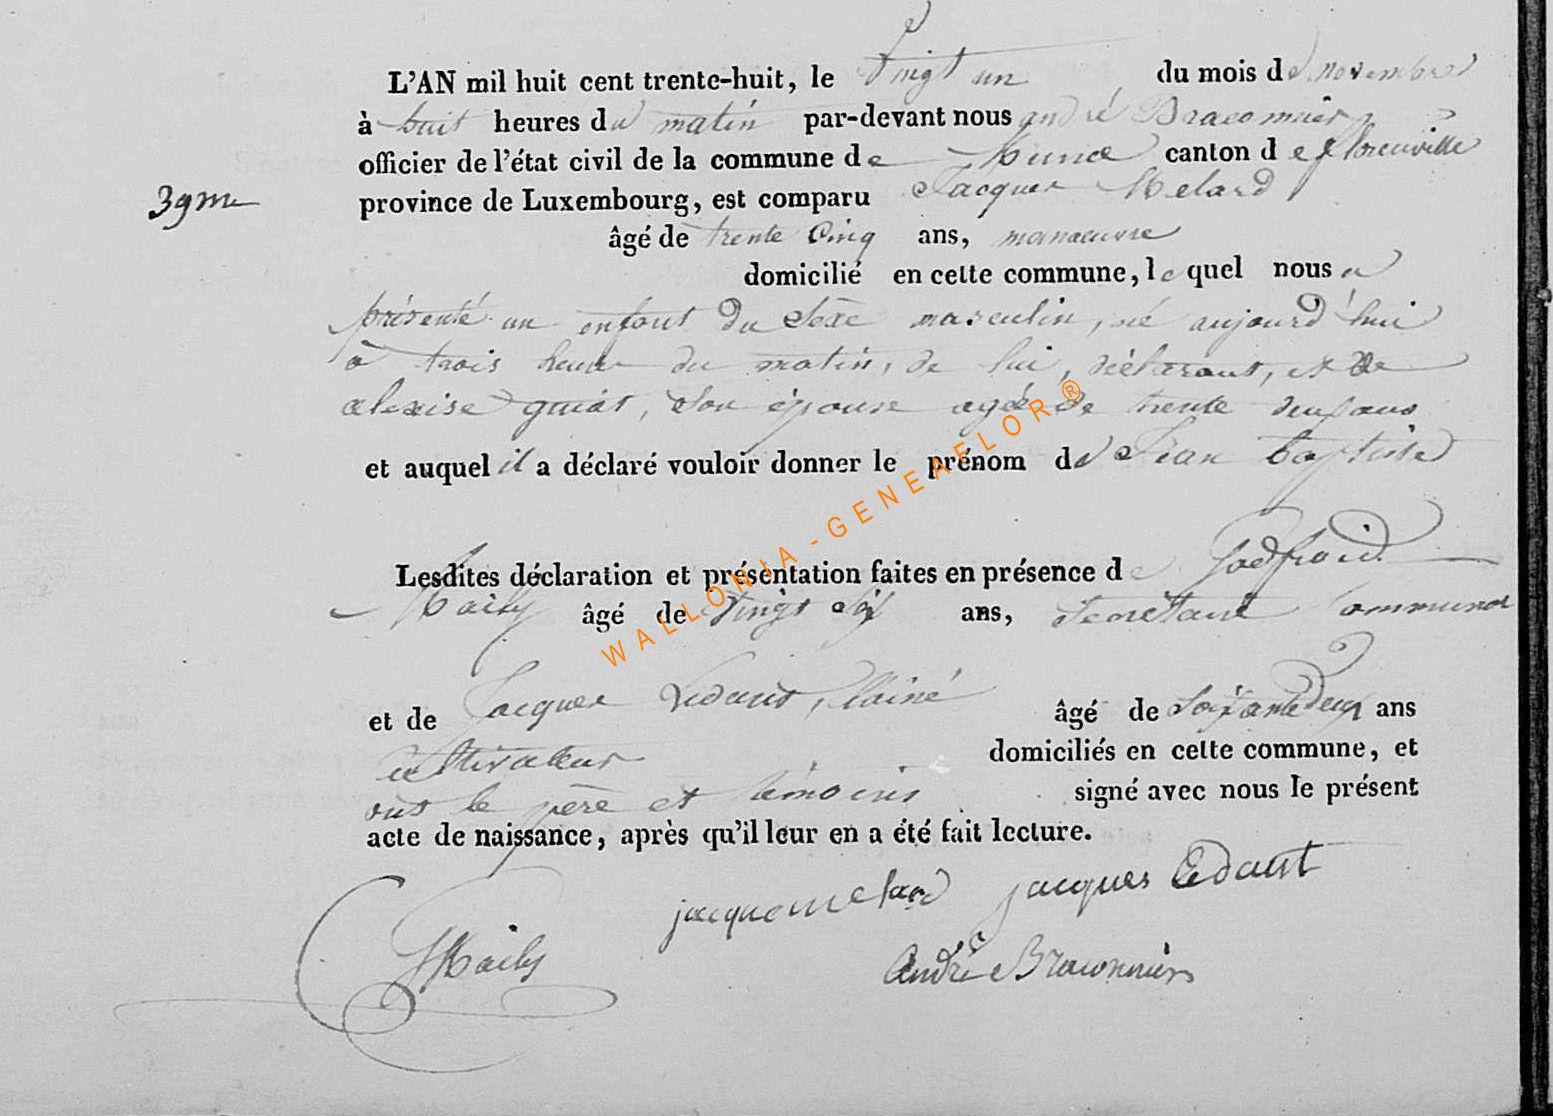 L'AN mil huit cent trente-huit, le vingt un du mois de novembre
à huit heures du matin par-devant nous andré Braconnier
officier de l'état civil de la commune de Muno canton de florenville
39me province de Luxembourg, est comparu Jacques Melard
âgé de trente cinq ans, manoeuvre
domicilié en cette commune, lequel nous a
présenté un enfant du sexe masculin, né aujourd'hui
à trois heures du matin, de lui, déclarant, et de
alexise guiot, son épouse agée de trente deux ans
et auquel il a déclaré vouloir donner le prénom de Jean baptiste
Lesdites déclaration et présentation faites en présence de Godfroid
Maily âgé de vingt six ans, Secretaire Communal
et de Jacques Ledant, l'ainé âgé de Soixante deux ans
cultivateur domiciliés en cette commune, et
ont le père et témoins signé avec nous le présent
acte de naissance, après qu'il leur en a été fait lecture.
jacque melard jacques Ledant
Mailys André Braconnier
WALLONIA - GENEAFLOR ®